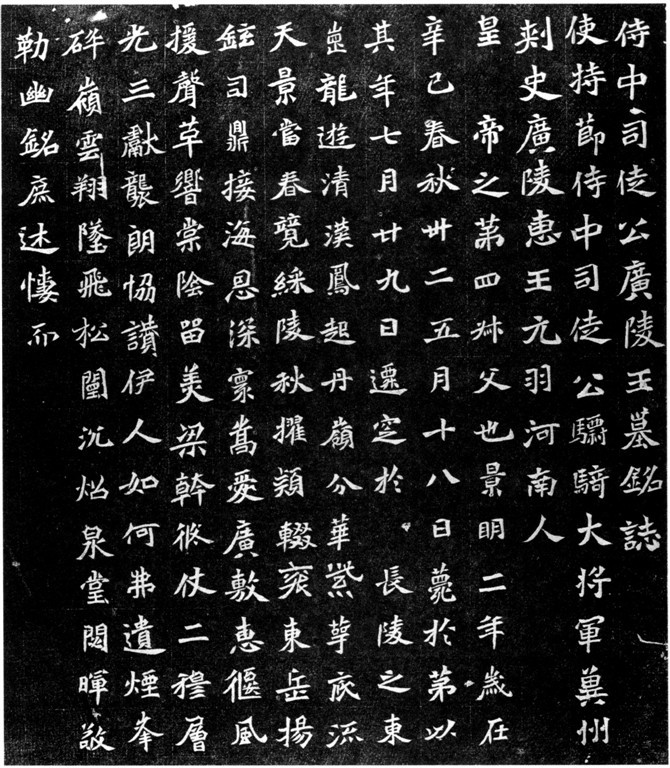 侍中司徒公廣陵王墓銘誌
使持節侍中司徒公驃騎大將軍冀州
刾史廣陵惠王元羽河南人
皇　帝之第四叔父也景明二年歲在
辛巳春秋卅二五月十八日薨於第以
其年七月廿九日遷窆於　長陵之東
崗龍遊清漢鳳起丹嶺分華紫萼底流
天景當春競綵陵秋擢穎輟袞東岳揚
鉉司鼎接海恩深寰嵩愛廣敷惠偃風
援聲草響棠陰留美梁幹攸仗二穆層
光三獻襲朗協讚伊人如何弗遺煙峯
碎嶺雲翔墜飛松闈沉炤泉堂閟暉敬
勒幽銘庶述悽而